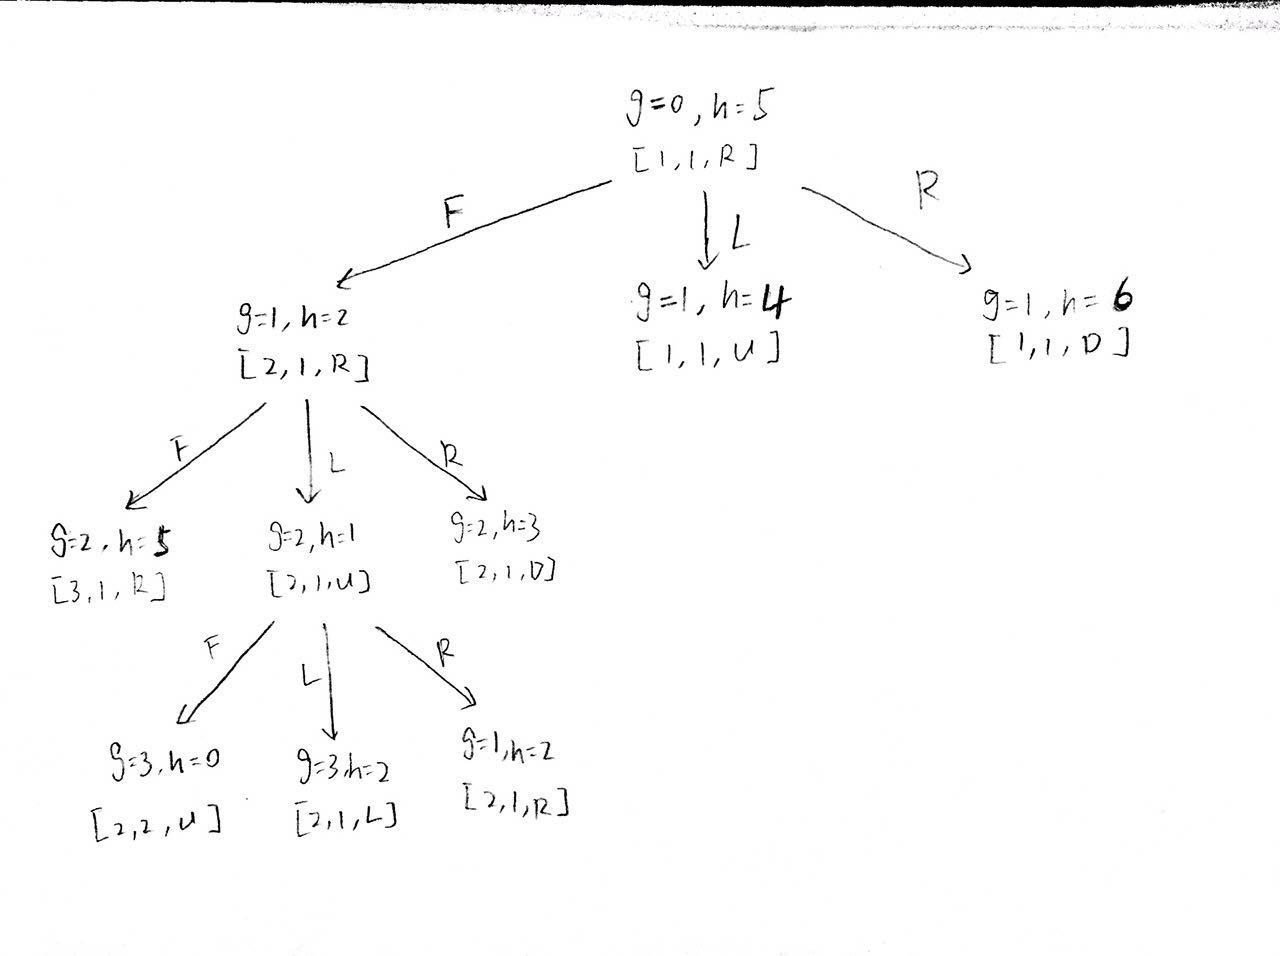 g=0, h=5
[1,1,R]
F
L
R
g=1, h=2
[2,1,R]
g=1, h=4
[1,1,U]
g=1, h=6
[1,1,D]
F
L
R
g=2, h=5
[3,1,R]
g=2, h=1
[2,1,U]
g=2, h=3
[2,1,D]
F
L
R
g=3, h=0
[2,2,U]
g=3, h=2
[2,1,L]
g=1, h=2
[2,1,R]